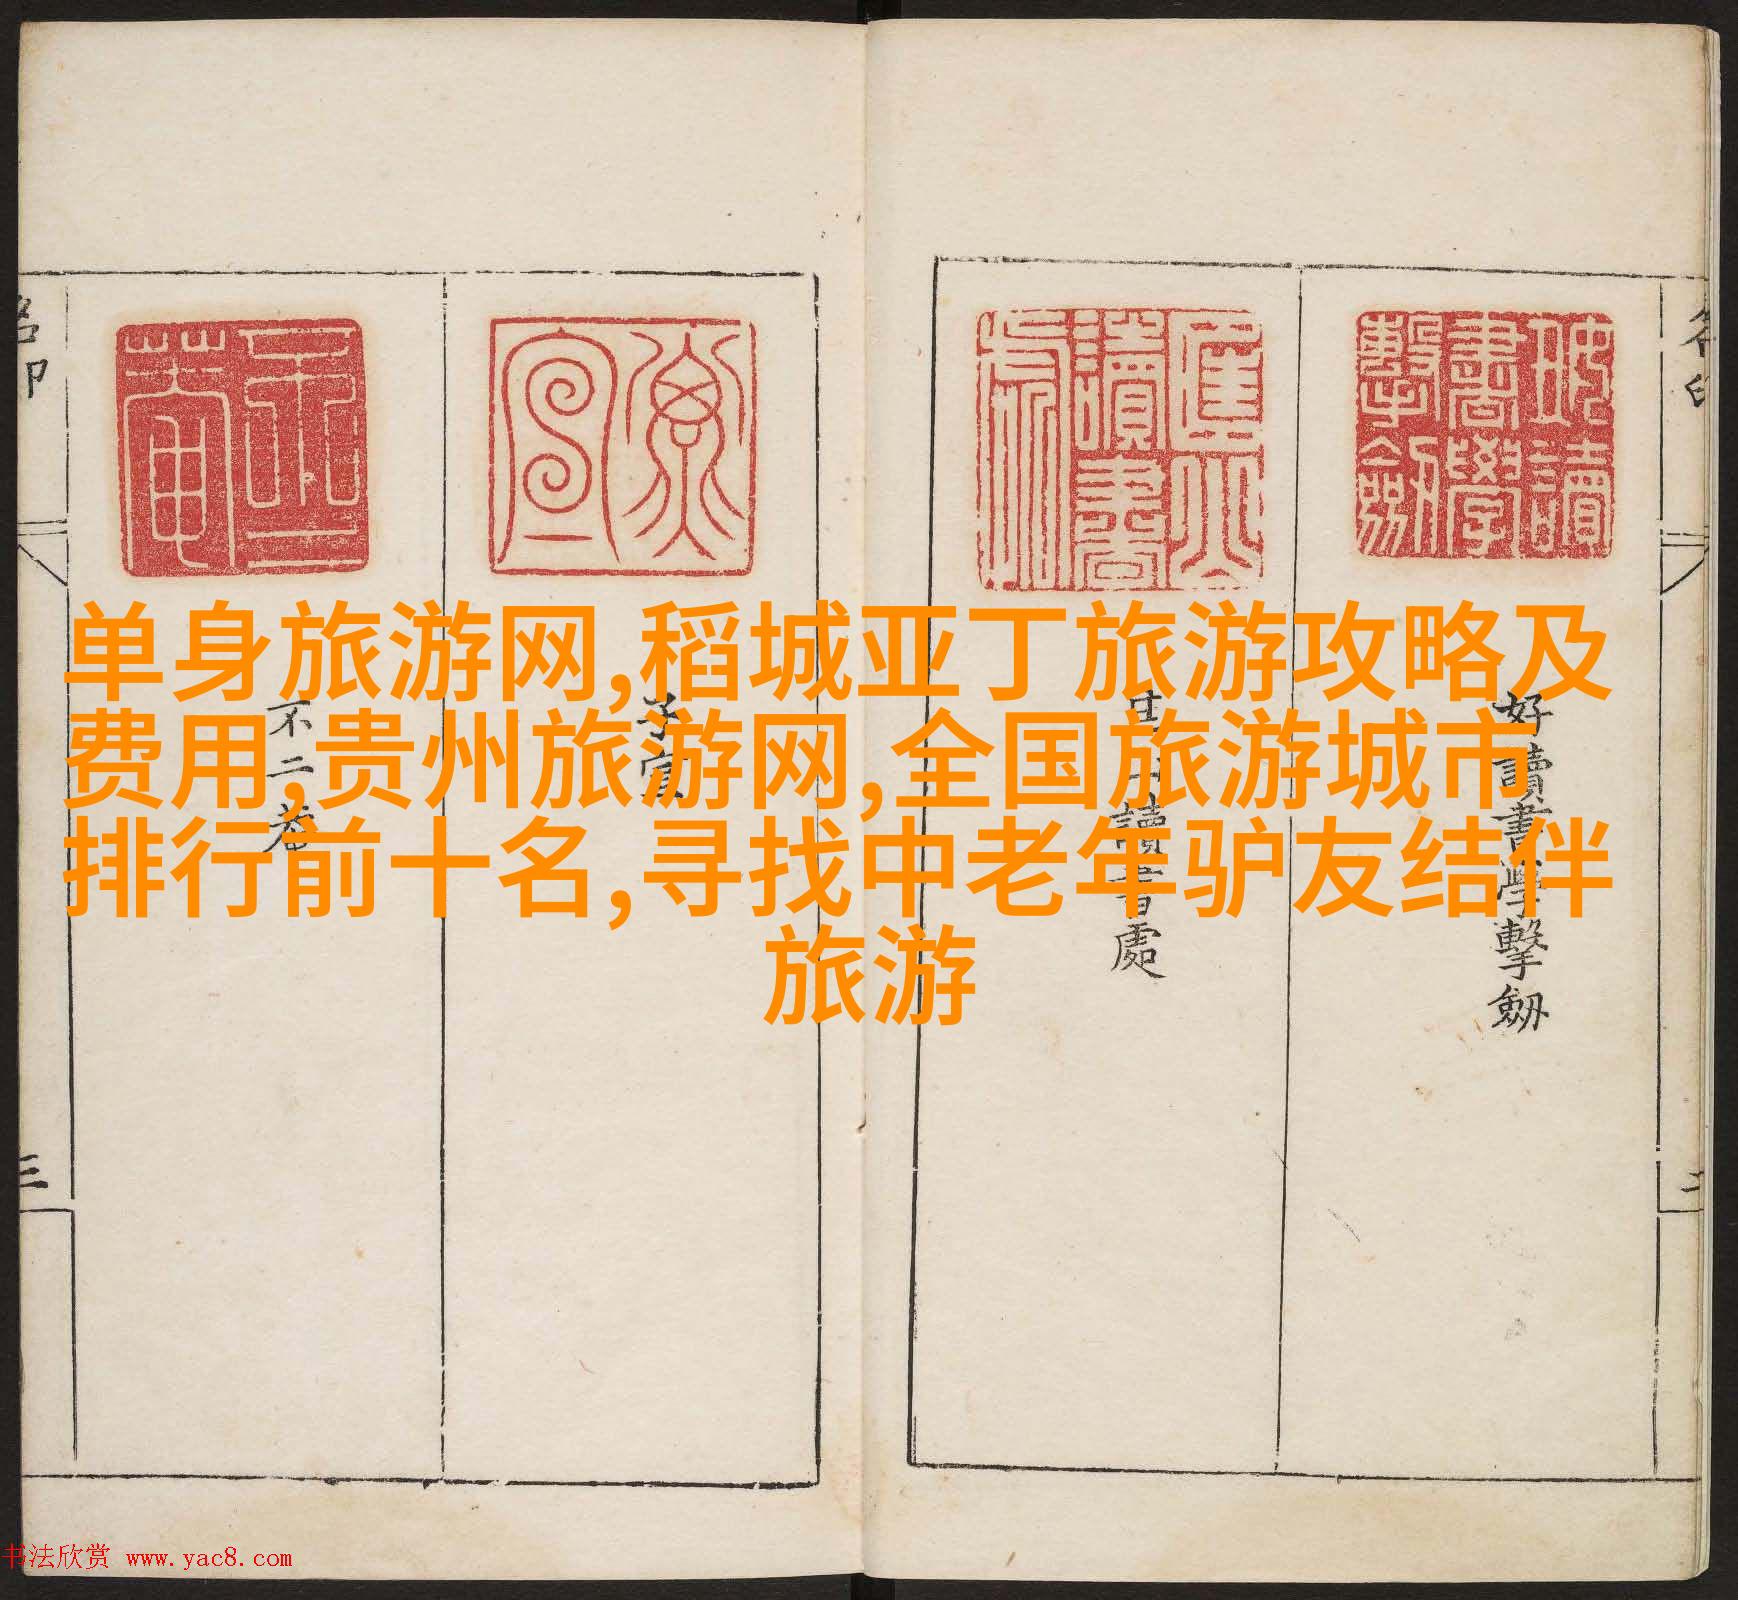 单身旅游网,稻城亚丁旅游攻略及
费用,贵州旅游网,全国旅游城市
排行前十名,寻找中老年驴友结伴
旅游
好讀書學擊劒
匡山讀書處
子宣
不二菴
名印
三
书法欣赏 www.yac8.com